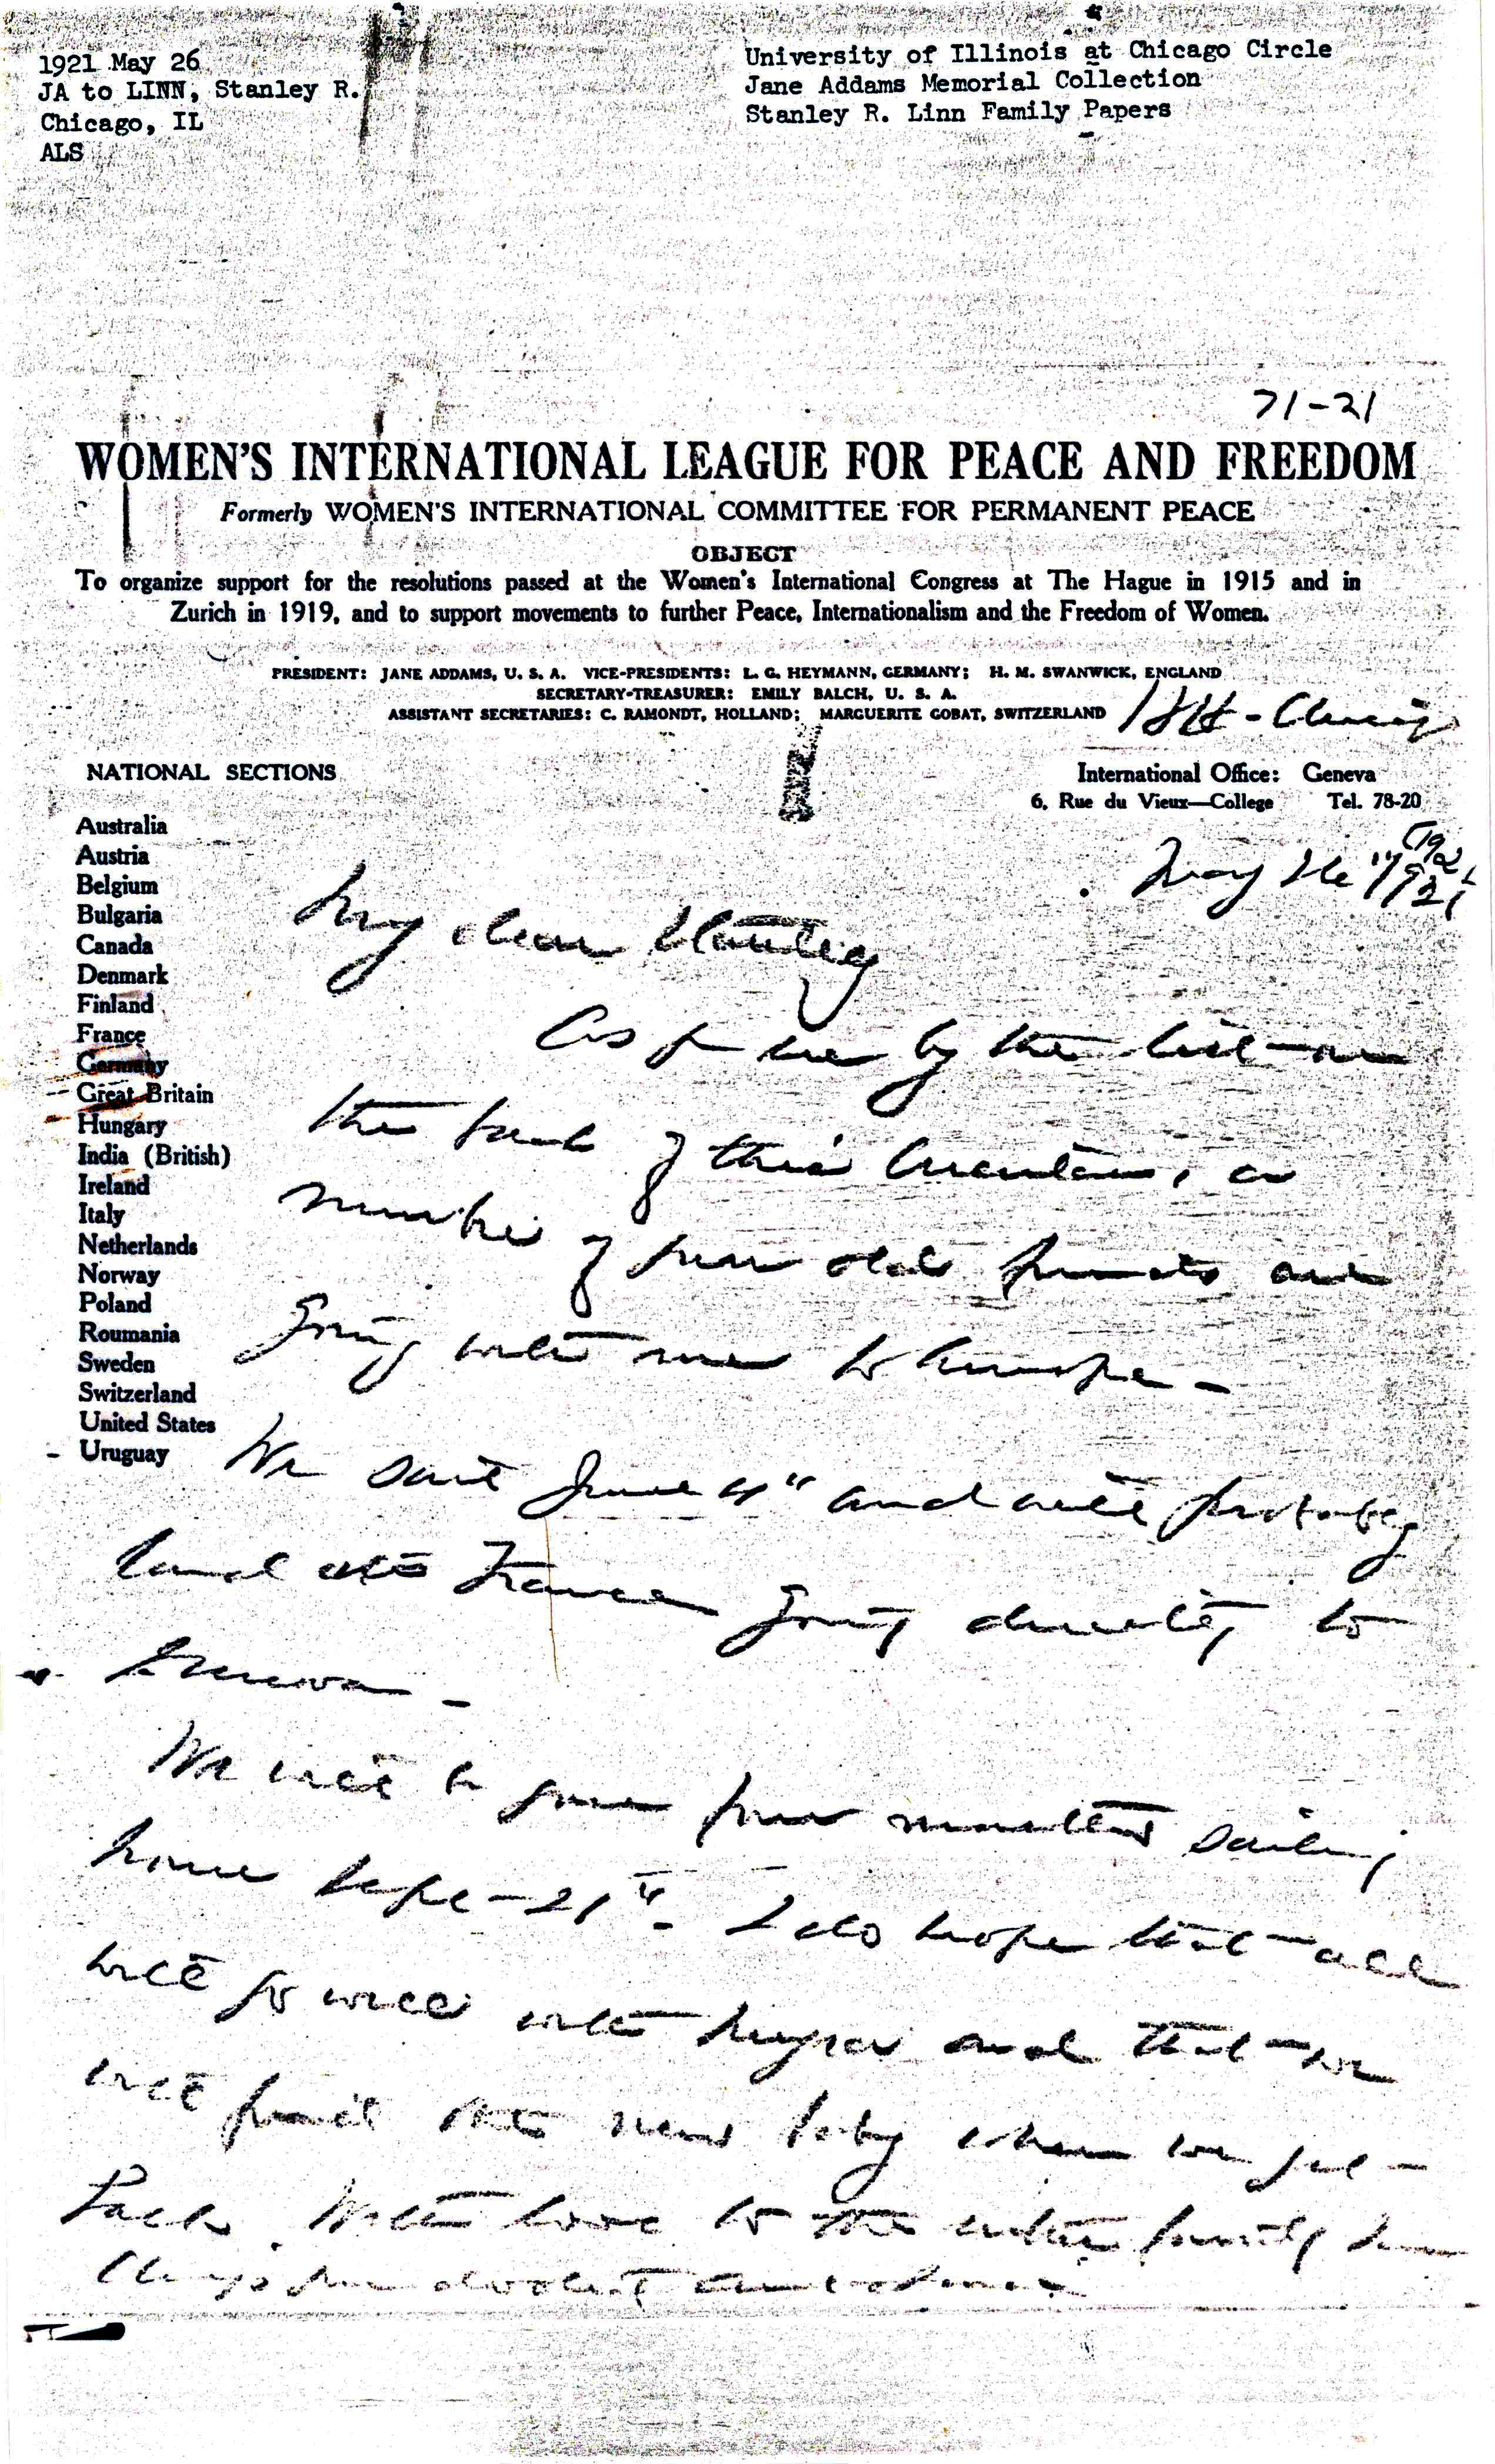 1921 May 26
JA to LINN, Stanley R.
Chicago, IL
ALS
University of Illinois at Chicago Circle
Jane Addams Memorial Collection
Stanley R. Linn Family Papers
71-21
WOMEN'S INTERNATIONAL LEAGUE FOR PEACE AND FREEDOM
Formerly WOMEN'S INTERNATIONAL COMMITTEE FOR PERMANENT PEACE
OBJECT
To organize support for the resolutions passed at the Women's International Congress at The Hague in 1915 and in
Zurich in 1919, and to support movements to further Peace, Internationalism and the Freedom of Women.
PRESIDENT: JANE ADDAMS, U. S. A. VICE-PRESIDENTS: L. G. HEYMANN, GERMANY; H. M. SWANWICK, ENGLAND
SECRETARY-TREASURER: EMILY BALCH, U. S. A.
ASSISTANT SECRETARIES: C. RAMONDT, HOLLAND; MARGUERITE GOBAT, SWITZERLAND
HH-Chicago
NATIONAL SECTIONS
International Office: Geneva
6, Rue du Vieux—College Tel. 78-20
Australia
Austria
Belgium
Bulgaria
Canada
Denmark
Finland
France
Germany
Great Britain
Hungary
India (British)
Ireland
Italy
Netherlands
Norway
Poland
Roumania
Sweden
Switzerland
United States
Uruguay
May 26" 1921
My dear Stanley
As you see by the list on
the back of this , a
number of your old friends are
going with me to Europe -
We sail June 4" and will probably
land at France going directly to
Geneva -
We will be gone four months sailing
home Sept - 21" - I do hope that all
will go well with Myra and that we
will find the new baby when we get
back. With love to the entire family I am
always your devoted aunt Jane